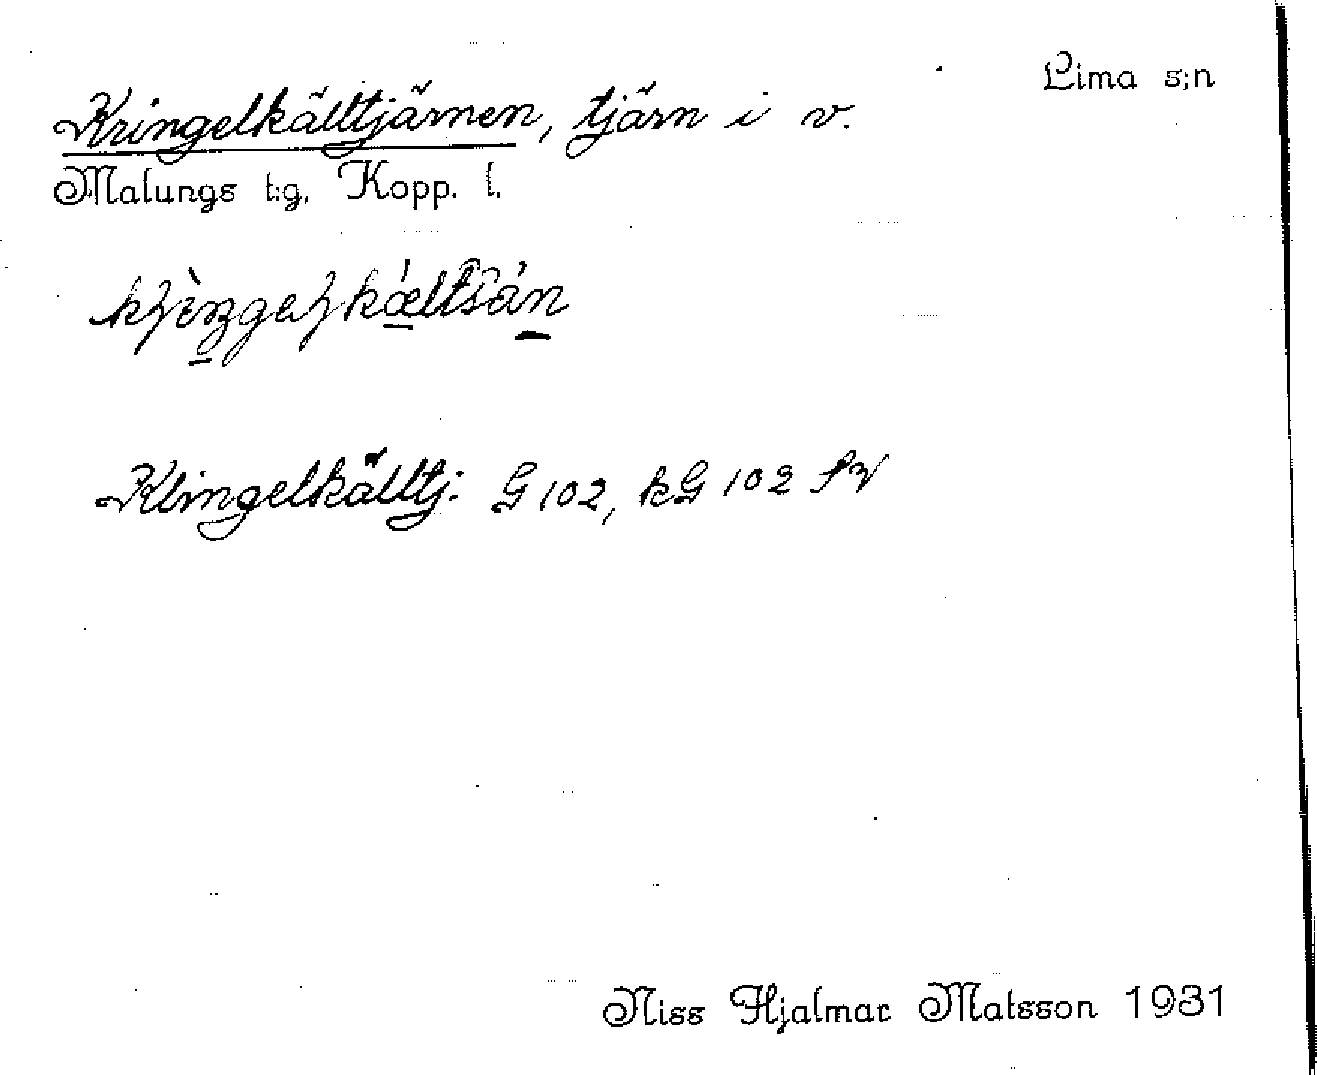 Lima s;n
Kringelkälltjärnen, tjärn i v.
Malungs t;g, Kopp. l.
Klingelkälltj: G 102, kG 102 SV
Niss Hjalmar Matsson 1931